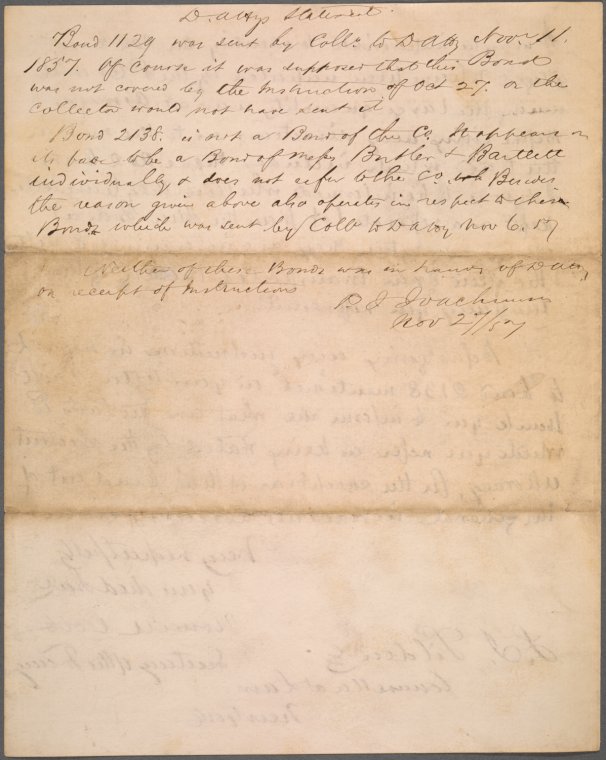 D. Attys Statement.
Bond 1129 was sent by Collr to D Atty Novr 11.
1857. Of course it was supposed that this Bond
was not covered by the Instruction of Oct 27. or the
Collector would not have sent it
Bond 2138. is not a Bond of the Co. It appears on
its face to be a Bond of Messrs Butler & Bartlett
individually & does not refer to the Co. Besides
the reason given above also operates in respect to these
Bonds which was sent by Collr to D Atty Nov 6. 57
Neither of these Bonds was in hands of D Atty
on receipt of Instructions
P. J. Joachimsen
Nov 27/57